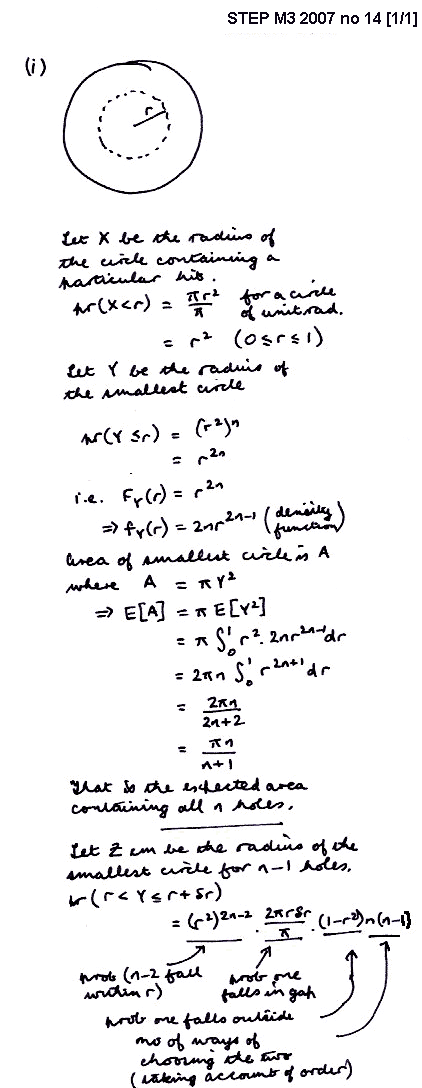 STEP M3 2007 no 14 [1/1]
(i)
r
Let X be the radius of
the circle containing a
particular hit.
pr(X<r) = πr²/π for a circle
of unit rad.
= r² (0≤r≤1)
Let Y be the radius of
the smallest circle
pr(Y≤r) = (r²)ⁿ
= r²ⁿ
i.e. F_Y(r) = r²ⁿ
⇒ f_Y(r) = 2nr²ⁿ⁻¹ (density
function)
Area of smallest circle is A
where A = πY²
⇒ E[A] = πE[Y²]
= π∫₀¹ r². 2nr²ⁿ⁻¹dr
= 2πn ∫₀¹ r²ⁿ⁺¹dr
= 2πn/2n+2
= πn/n+1
That is the expected area
containing all n holes.
Let Z be the radius of the
smallest circle for n-1 holes.
pr(r<Y≤r+δr)
= (r²)²ⁿ⁻² . 2πrδr/π . (1-r²)n(n-1)
prob (n-2 fall
within r)
prob one
falls in gap
prob one falls outside
no of ways of
choosing the two
(taking account of order)